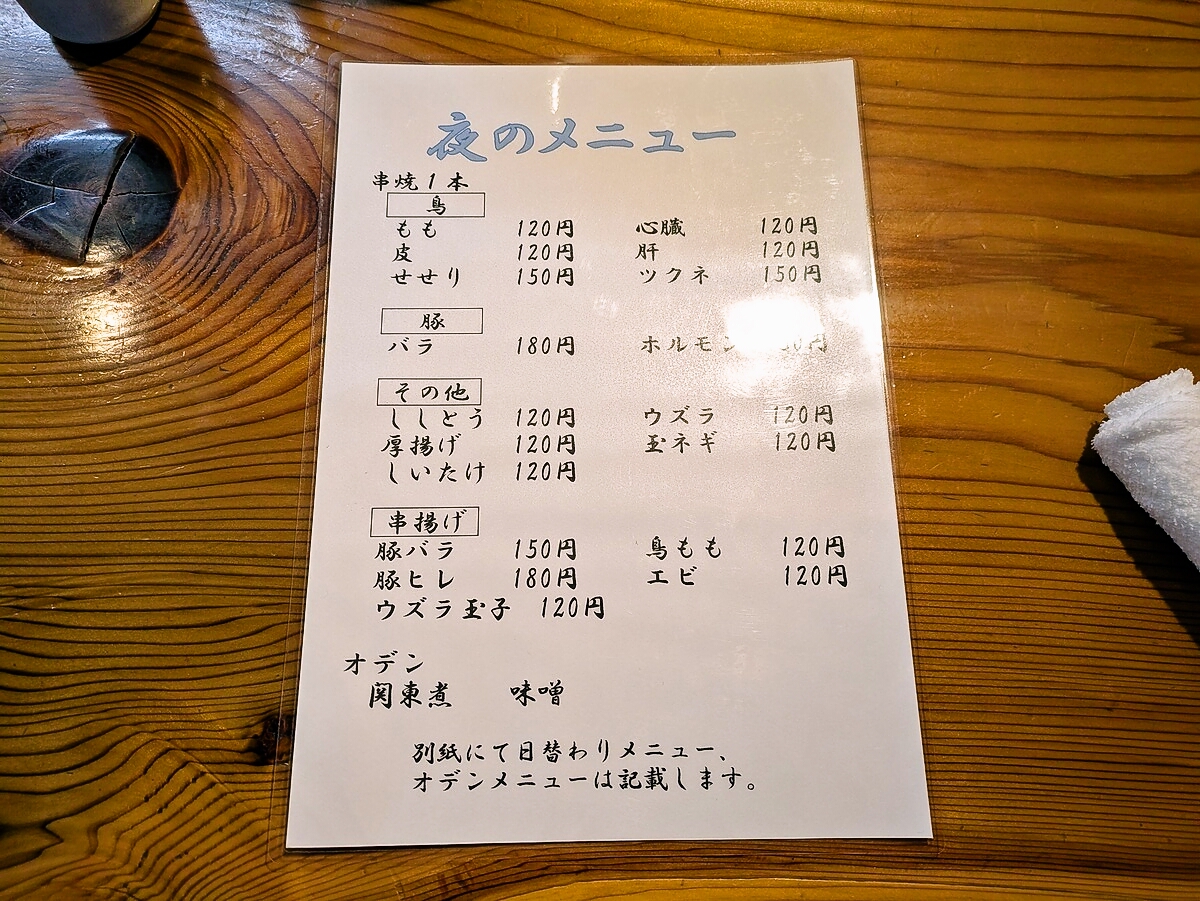 夜のメニュー
串焼1本
鳥
もも 120円 心臓 120円
皮 120円 肝 120円
せせり 150円 ツクネ 150円
豚
バラ 180円 ホルモン
その他
ししとう 120円 ウズラ 120円
厚揚げ 120円 玉ネギ 120円
しいたけ 120円
串揚げ
豚バラ 150円 鳥もも 120円
豚ヒレ 180円 エビ 120円
ウズラ玉子 120円
オデン
関東煮 味噌
別紙にて日替わりメニュー、
オデンメニューは記載します。